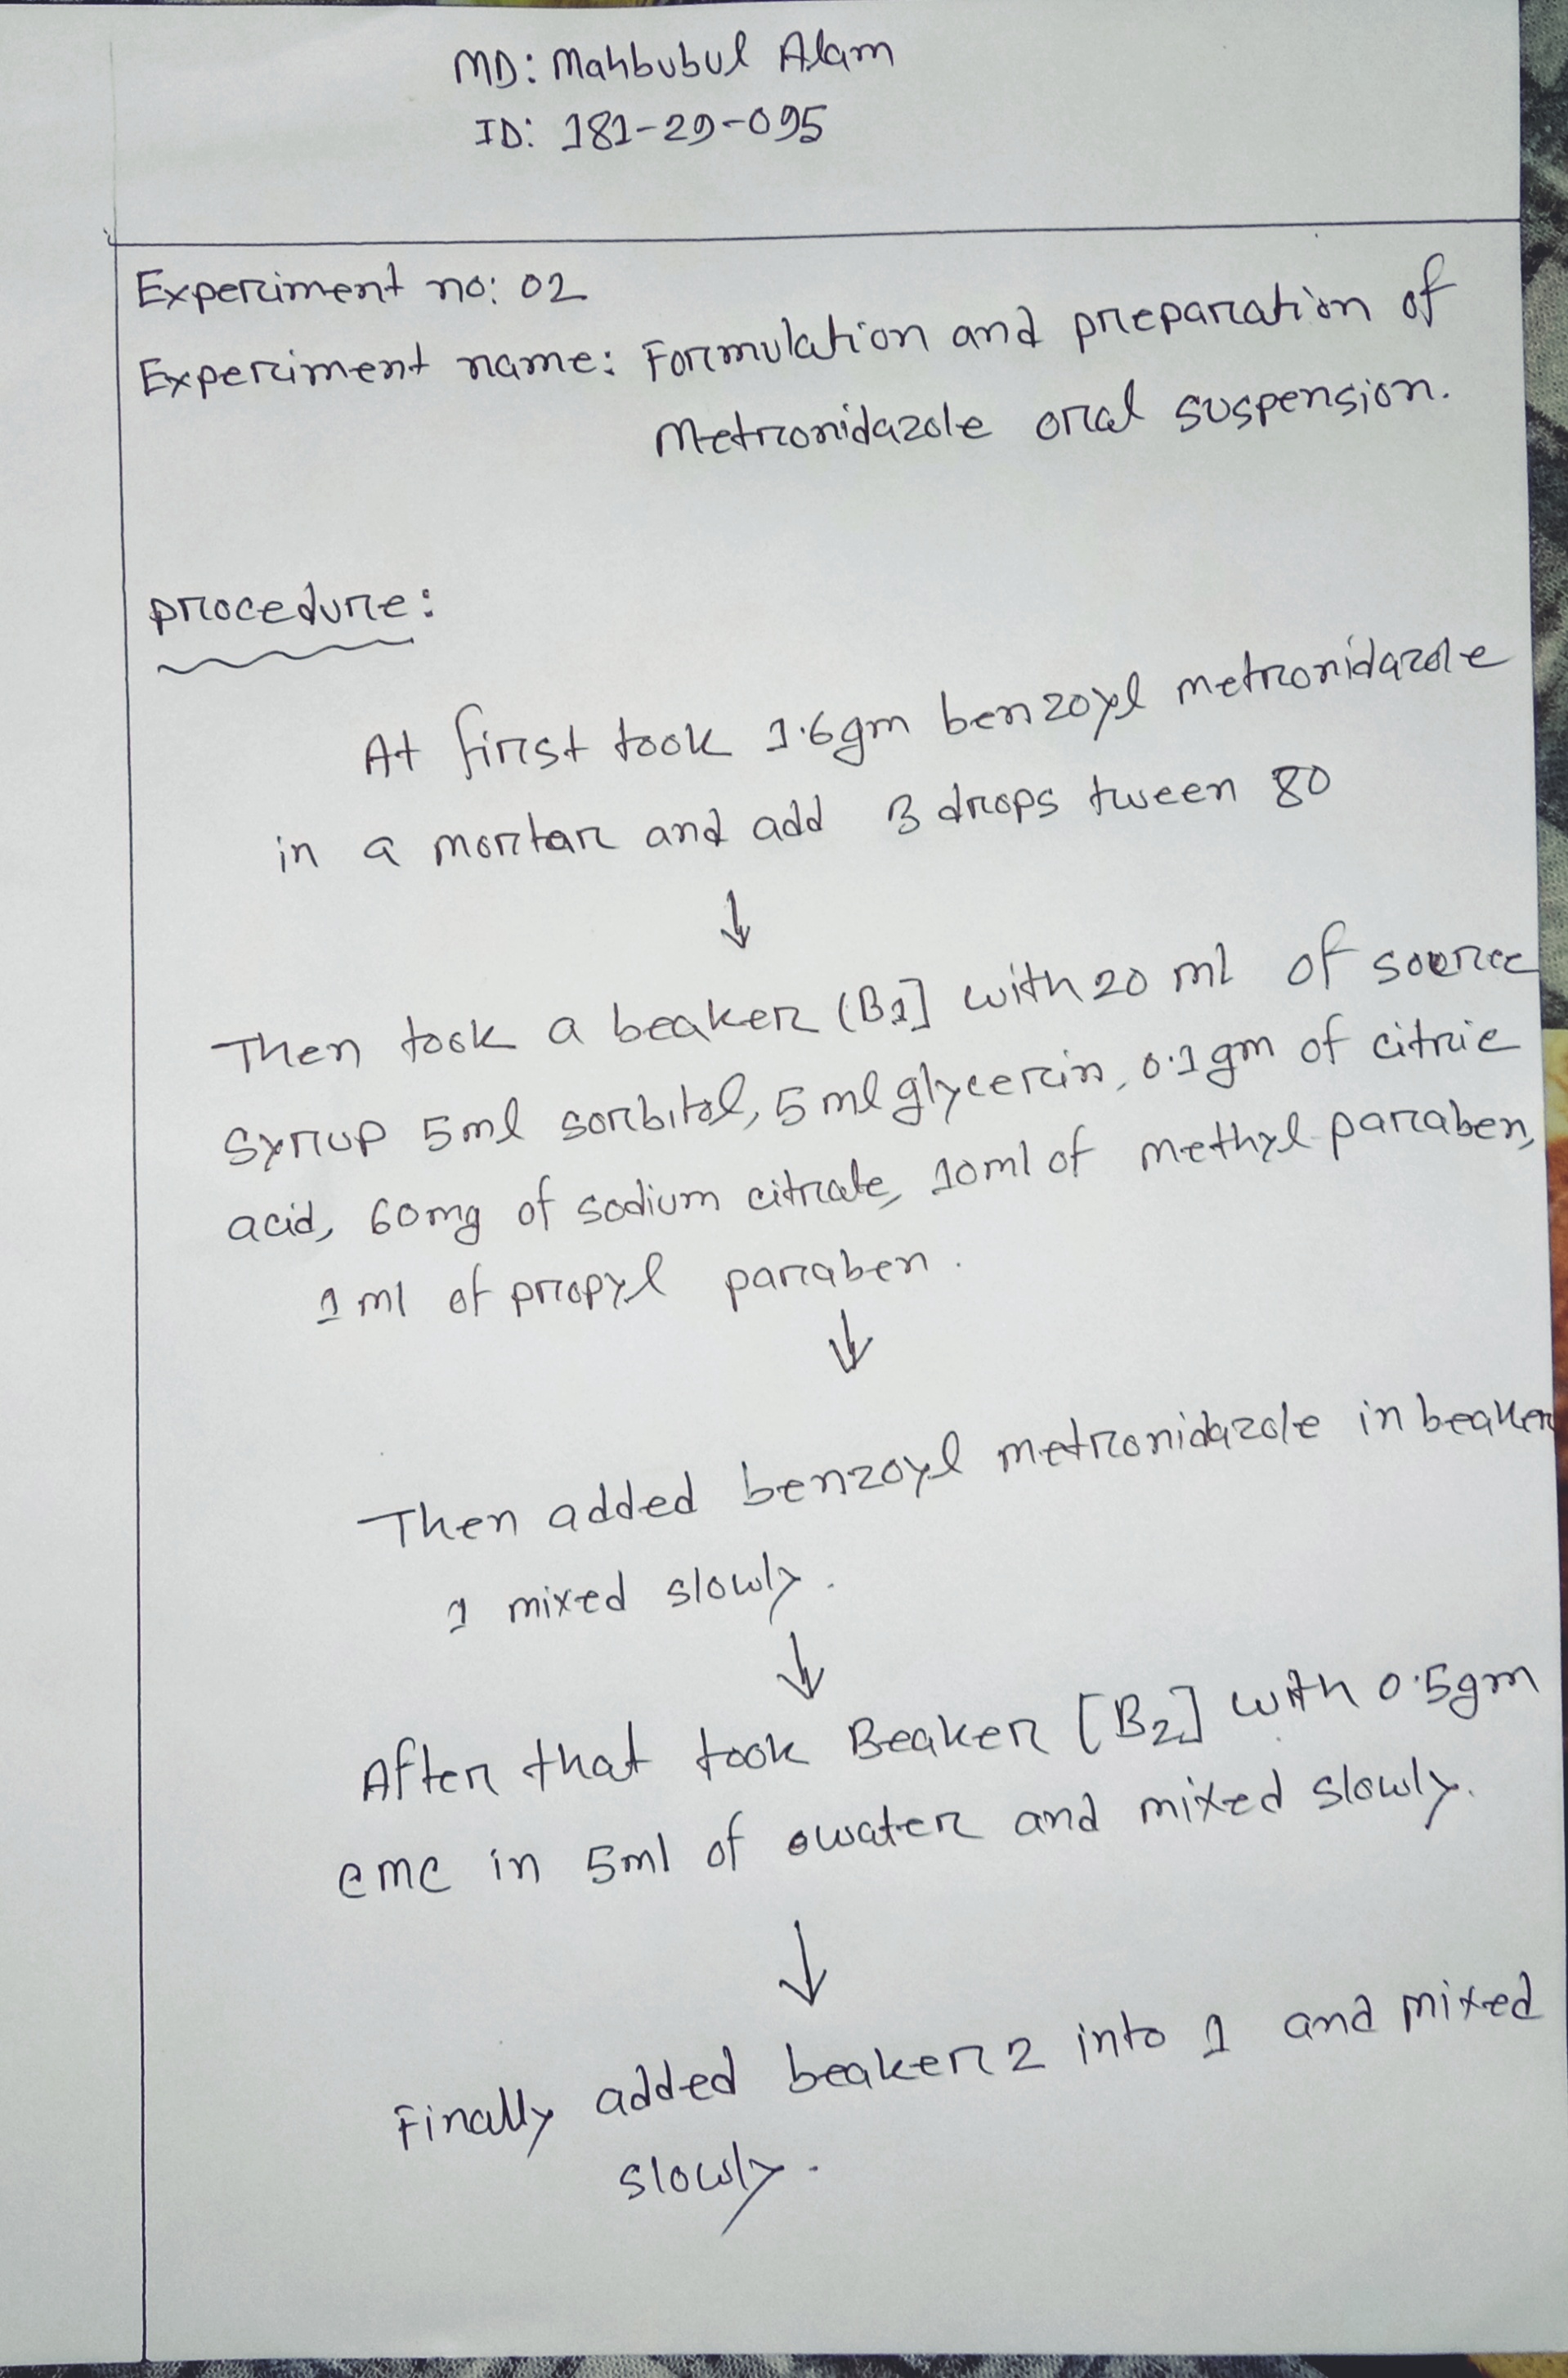 MD: Mahbubul Alam
ID: 181-29-095
Experiment no: 02
Experiment name: Formulation and preparation of
Metronidazole oral suspension.
procedure:
At first took 1.6gm benzoyl metronidazole
in a mortar and add 3 drops tween 80
↓
Then took a beaker (B1] with 20 ml of
syrup 5ml sorbitol, 5 ml glycerin, 0.1 gm of citric
acid, 60mg of sodium citrate, 10ml of methyl paraben,
1 ml of propyl paraben.
↓
Then added benzoyl metronidazole in beaker
1 mixed slowly.
↓
After that took Beaker [B2] with 0.5gm
cmc in 5ml of water and mixed slowly.
↓
Finally added beaker 2 into 1 and mixed
slowly.